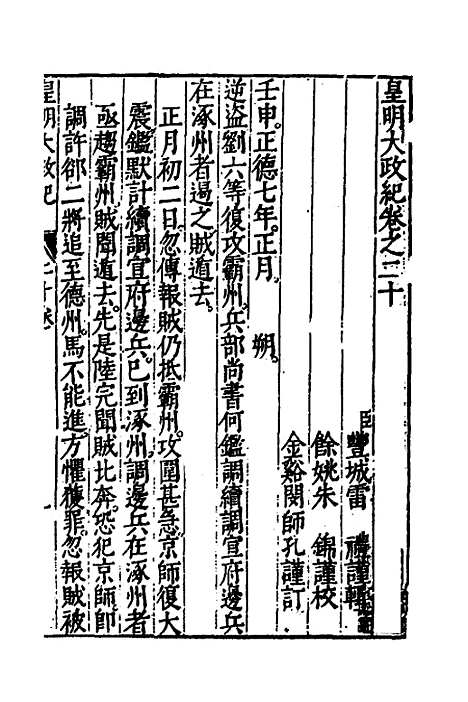 皇明大政紀卷之二十
臣豐城雷　禮謹輯
餘姚朱　錦謹校
金谿閔師孔謹訂
壬申。正德七年。正月　朔。
逆盜劉六等復攻霸州。兵部尚書何鑑調續調宣府邊兵
在涿州者遏之。賊遁去。
正月初二日。忽傳報賊仍抵霸州。攻圍甚急。京師復大
震。鑑默計續調宣府邊兵。已到涿州。調邊兵在涿州者
亟趨霸州。賊聞遁去。先是陸完聞賊北奔。恐犯京師。即
調許郤二將追至德州。馬不能進。方懼獲罪。忽報賊被
皇明大政紀　二十卷　一